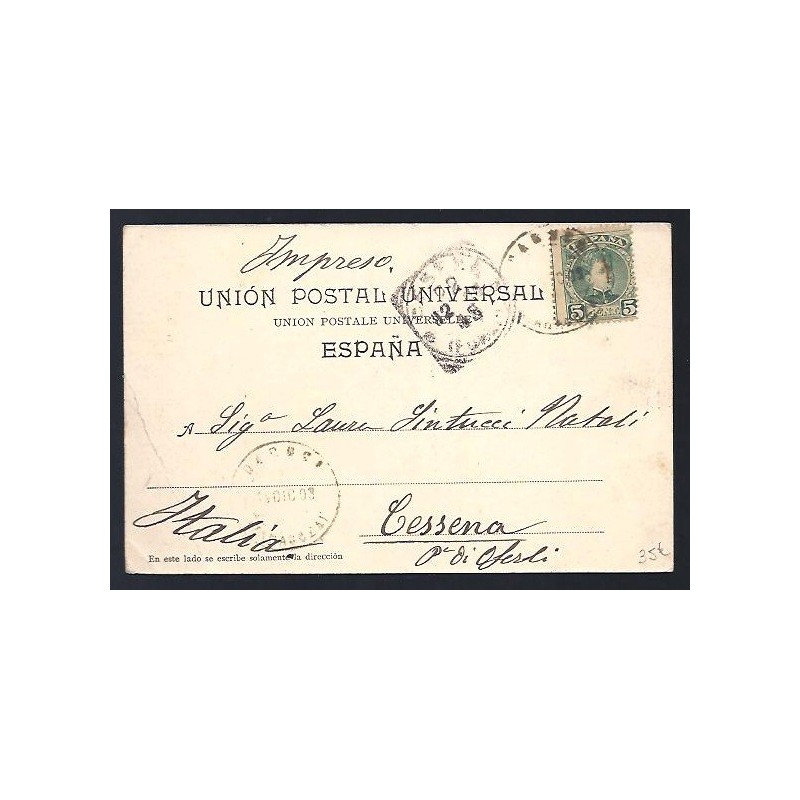 Impreso,
UNIÓN POSTAL UNIVERSAL
UNION POSTALE UNIVERSELLE
ESPAÑA
ESPAÑA
5 5
A Sigª Laura Sintucci Natali
DIC 03
Italia
Cessena
Pª di Forli
En este lado se escribe solamente la dirección
35€